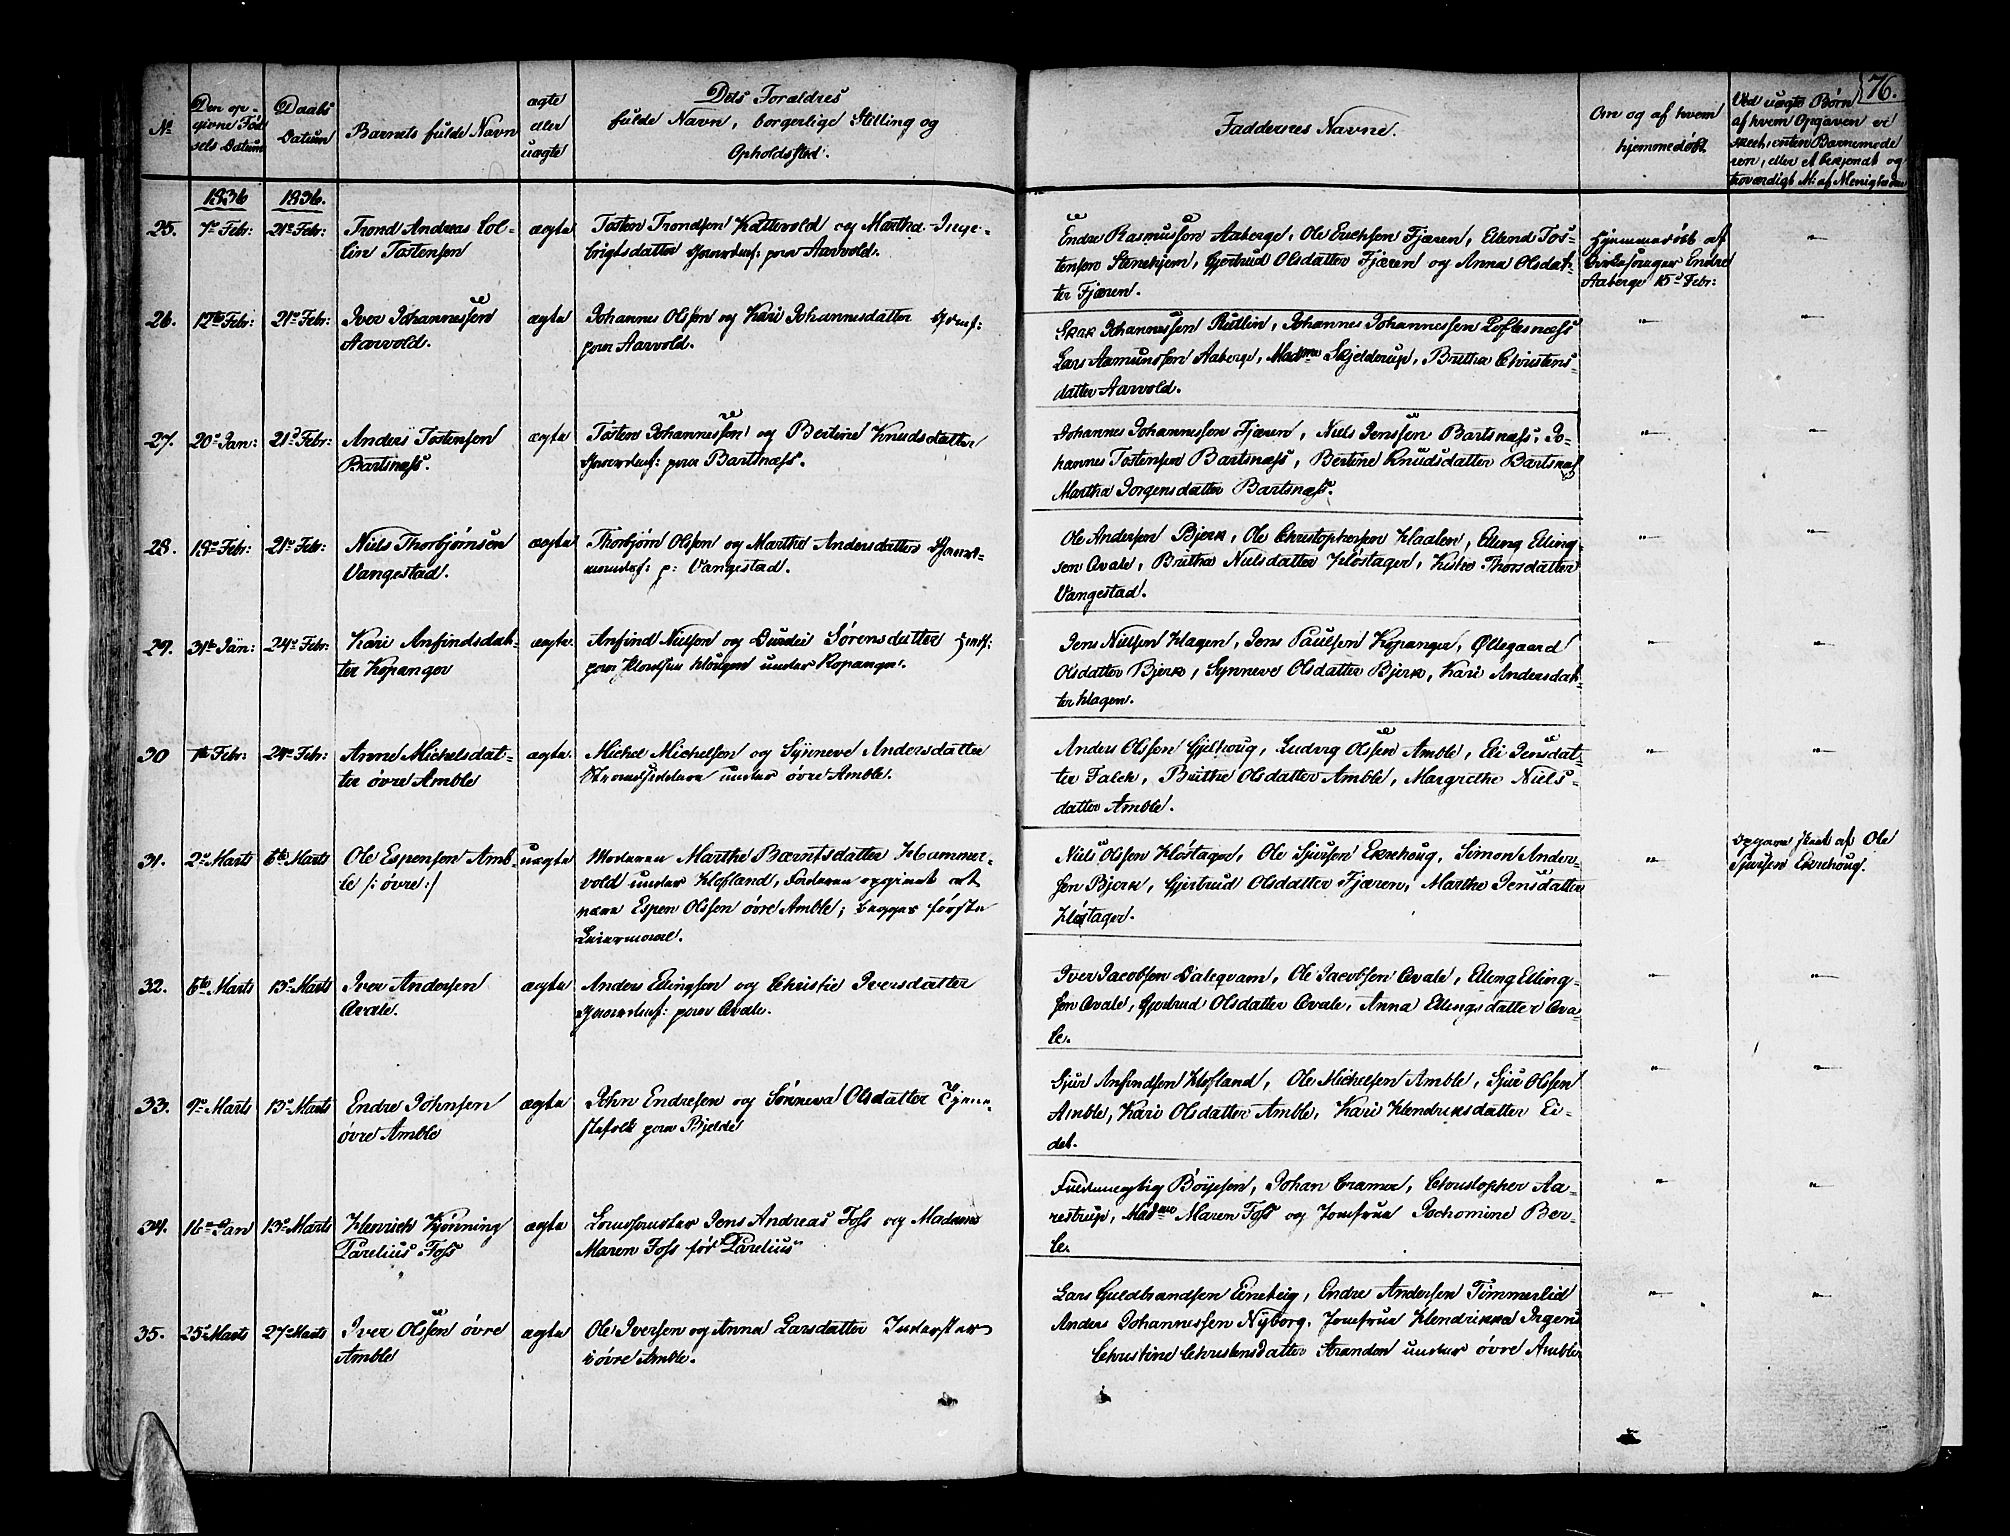 76.
No
Den op-
givne Fød
sels Datum
Daabs
Datum
Barnets fulde Navn
ægte
eller
uægte
Dets Forældres
fulde Navn, borgerlige Stilling og
Opholdssted.
Faddernes Navne.
Om og af hvem
hjemmedøbt.
Ved uægte Børn
af hvem Opgaven er
skeet, enten Barnemode
ren, eller et bekjendt og
troværdigt M: af Menigheden
1836
1836.
25.
7de Febr:
21de Febr:
Trond Andreas Col-
lin Tostensen
ægte
Tosten Trondsen Kattevold og Martha Inge-
brigtsdatter paa Aarvold.
Endre Rasmussen Aaberge, Ole Erichsen Fjæren, Erlend Tos-
tensen Stenehjem, Gjertrud Olsdatter Fjæren og Anna Olsdat-
ter Fjæren.
Hjemmedøbt af
Kirkesanger Endre
Aaberge 15de Febr:
26.
12te Febr:
21de Febr:
Iver Johannessen
Aarvold.
ægte
Johannes Olsson og Kari Johannesdatter
paa Aarvold.
Johannessen Rutlin, Johannes Johannessen Loftesnæss
Lars Aamundsen Aaberge, Madme Skjelderup, Britha Christens-
datter Aarvold.
27.
20de Jan:
21de Febr:
Anders Tostensen
Bartsnæss.
ægte
Tosten Johannessen og Bertine Knudsdatter
paa Bartsnæss.
Johannes Johannessen Fjæren, Niels Jenssen Bartsnæss, Jo-
hannes Tostensen Bartsnæss, Bertine Knudsdatter Bartsnæs
Martha Jorgensdatter Bartsnæss.
28.
18de Febr:
21de Febr:
Niels Thorbjørnsen
Vangestad.
ægte
Thorbjørn Olsson og Marthe Andersdatter
p: Vangestad.
Ole Andersen Bjerk, Ole Christophersen Hladen, Elling Elling-
sen Qvale, Britha Nielsdatter Kløstager, Thorsdatter
Vangestad.
29.
31te Jan:
24de Febr:
Kari Anfindsdat-
ter Kopanger
ægte
Anfind Nielsen og Durdei Sørensdatter
paa under Kopanger.
Jens Nielsen Hagen, Jens Paulsen Kopanger, Øllegaard
Olsdatter Bjerk, Synneve Olsdatter Bjerk, Kari Andersdat-
ter Hagen.
30
1te Febr:
24de Febr:
Anne Michelsdat-
ter øvre Amble
ægte.
Michel Michelsen og Synneve Andersdatter
Strandsiddere under øvre Amble.
Anders Olsson Gjelhoug, Ludvig Olsson Amble, Eli Jensdat-
ter Falch, Brithe Olsdatter Amble, Margrethe Niels-
datter Amble.
31.
2den Marts
6te Marts
Ole Espensen Amb-
le /: øvre:/
uægte
Moderen Marthe Berntsdatter Hammer-
vold under Hofland, Faderen opgivet at
være Espen Olsson øvre Amble; begges første
Leiermaal.
Niels Olsson Kløstager, Ole Sjursen Ekrehoug, Simon Ander-
sen Bjerk, Gjertrud Olsdatter Fjæren, Marthe Jensdatter
Kløstager.
Opgaven skeet af Ole
Sjursen Ekrehoug.
32.
6te Marts
13de Marts
Iver Andersen
Qvale.
ægte
Anders Ellingsen og Christie Iversdatter
paa Qvale.
Iver Jacobsen Daleqvam, Ole Jacobsen Qvale, Elling Elling-
sen Qvale, Gjertrud Olsdatter Qvale, Anna Ellingsdatter Qva-
le.
33.
9de Marts
13de Marts
Endre Johnsen
øvre Amble
ægte
John Endresen og Sønneva Olsdatter Tjene-
stefolk paa Bjelde
Sjur Anfindsen Hofland, Ole Michelsen Amble, Sjur Olsson
Amble, Kari Olsdatter Amble, Kari Hendriksdatter Ei-
det.
34.
16de Jan
13de Marts
Henrich Kjønning
Parelius Foss
ægte
Jens Andreas Foss og Madame
Maren Foss født Parelius
Fuldmægtig Bøysen, Johan Cramer, Christopher Aa-
restrup, Madme Maren Foss og Jomfrue Jochomine Ber-
le.
35.
25de Marts
27de Marts
Iver Olssen øvre
Amble
ægte
Ole Iversen og Anna Larsdatter Inderster
i øvre Amble.
Lars Guldbrandsen Eineteig, Endre Andersen Tømmerlid
Anders Johannessen Nyborg, Jomfrue Hendrikka
Christine Christensdatter Arandon under øvre Amble